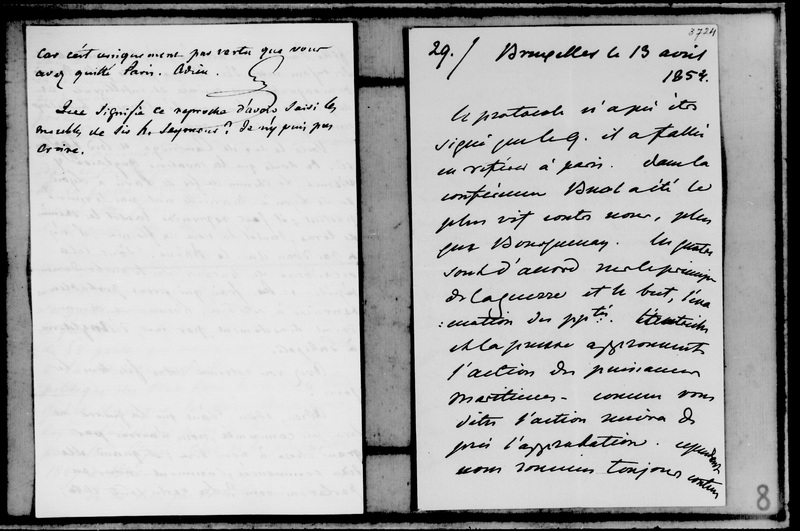 Car c'est uniquement par vertu que vous
avez quitté Paris. Adieu.
Que signifie ce reproche d'avoir saisi les
meubles de Sir H. Seymour? Je n'y puis pas
croire.
3724
29./ Bruxelles le 13 avril
1854.
Le protocole n'a pu être
signé que le 9. il a fallu
en référer à Paris. dans la
conférence Buol a été le
plus vif contre nous, plus
que Bourqueney. les quatre
sont d'accord sur le principe
de la guerre et le but, l'éva
:cuation des pptés. l'Autriche
et la Prusse approuvent
l'action des puissances
maritimes. comme vous
dites l'action suivra de
près l'approbation. cependant
nous sommes toujours contens
8